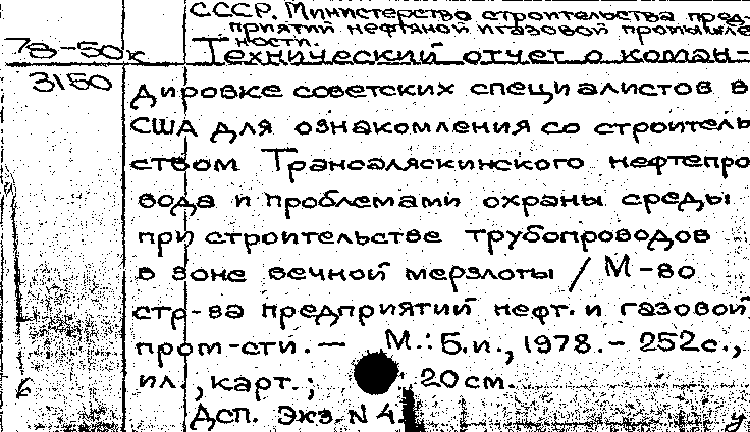 СССР. Министерство строительства пред-
приятий нефтяной и газовой промышле
ности.
78-50к Технический отчет о коман-
3150 дировке советских специалистов в
США для ознакомления со строитель
ством Трансаляскинского нефтепро
вода и проблемами охраны среды
при строительстве трубопроводов
в зоне вечной мерзлоты / М-во
стр-ва предприятий нефт. и газовой
пром-сти. — М.: Б.и., 1978. - 252с.,
ил., карт.; 20 см.
Дсп. Экз. N 4.